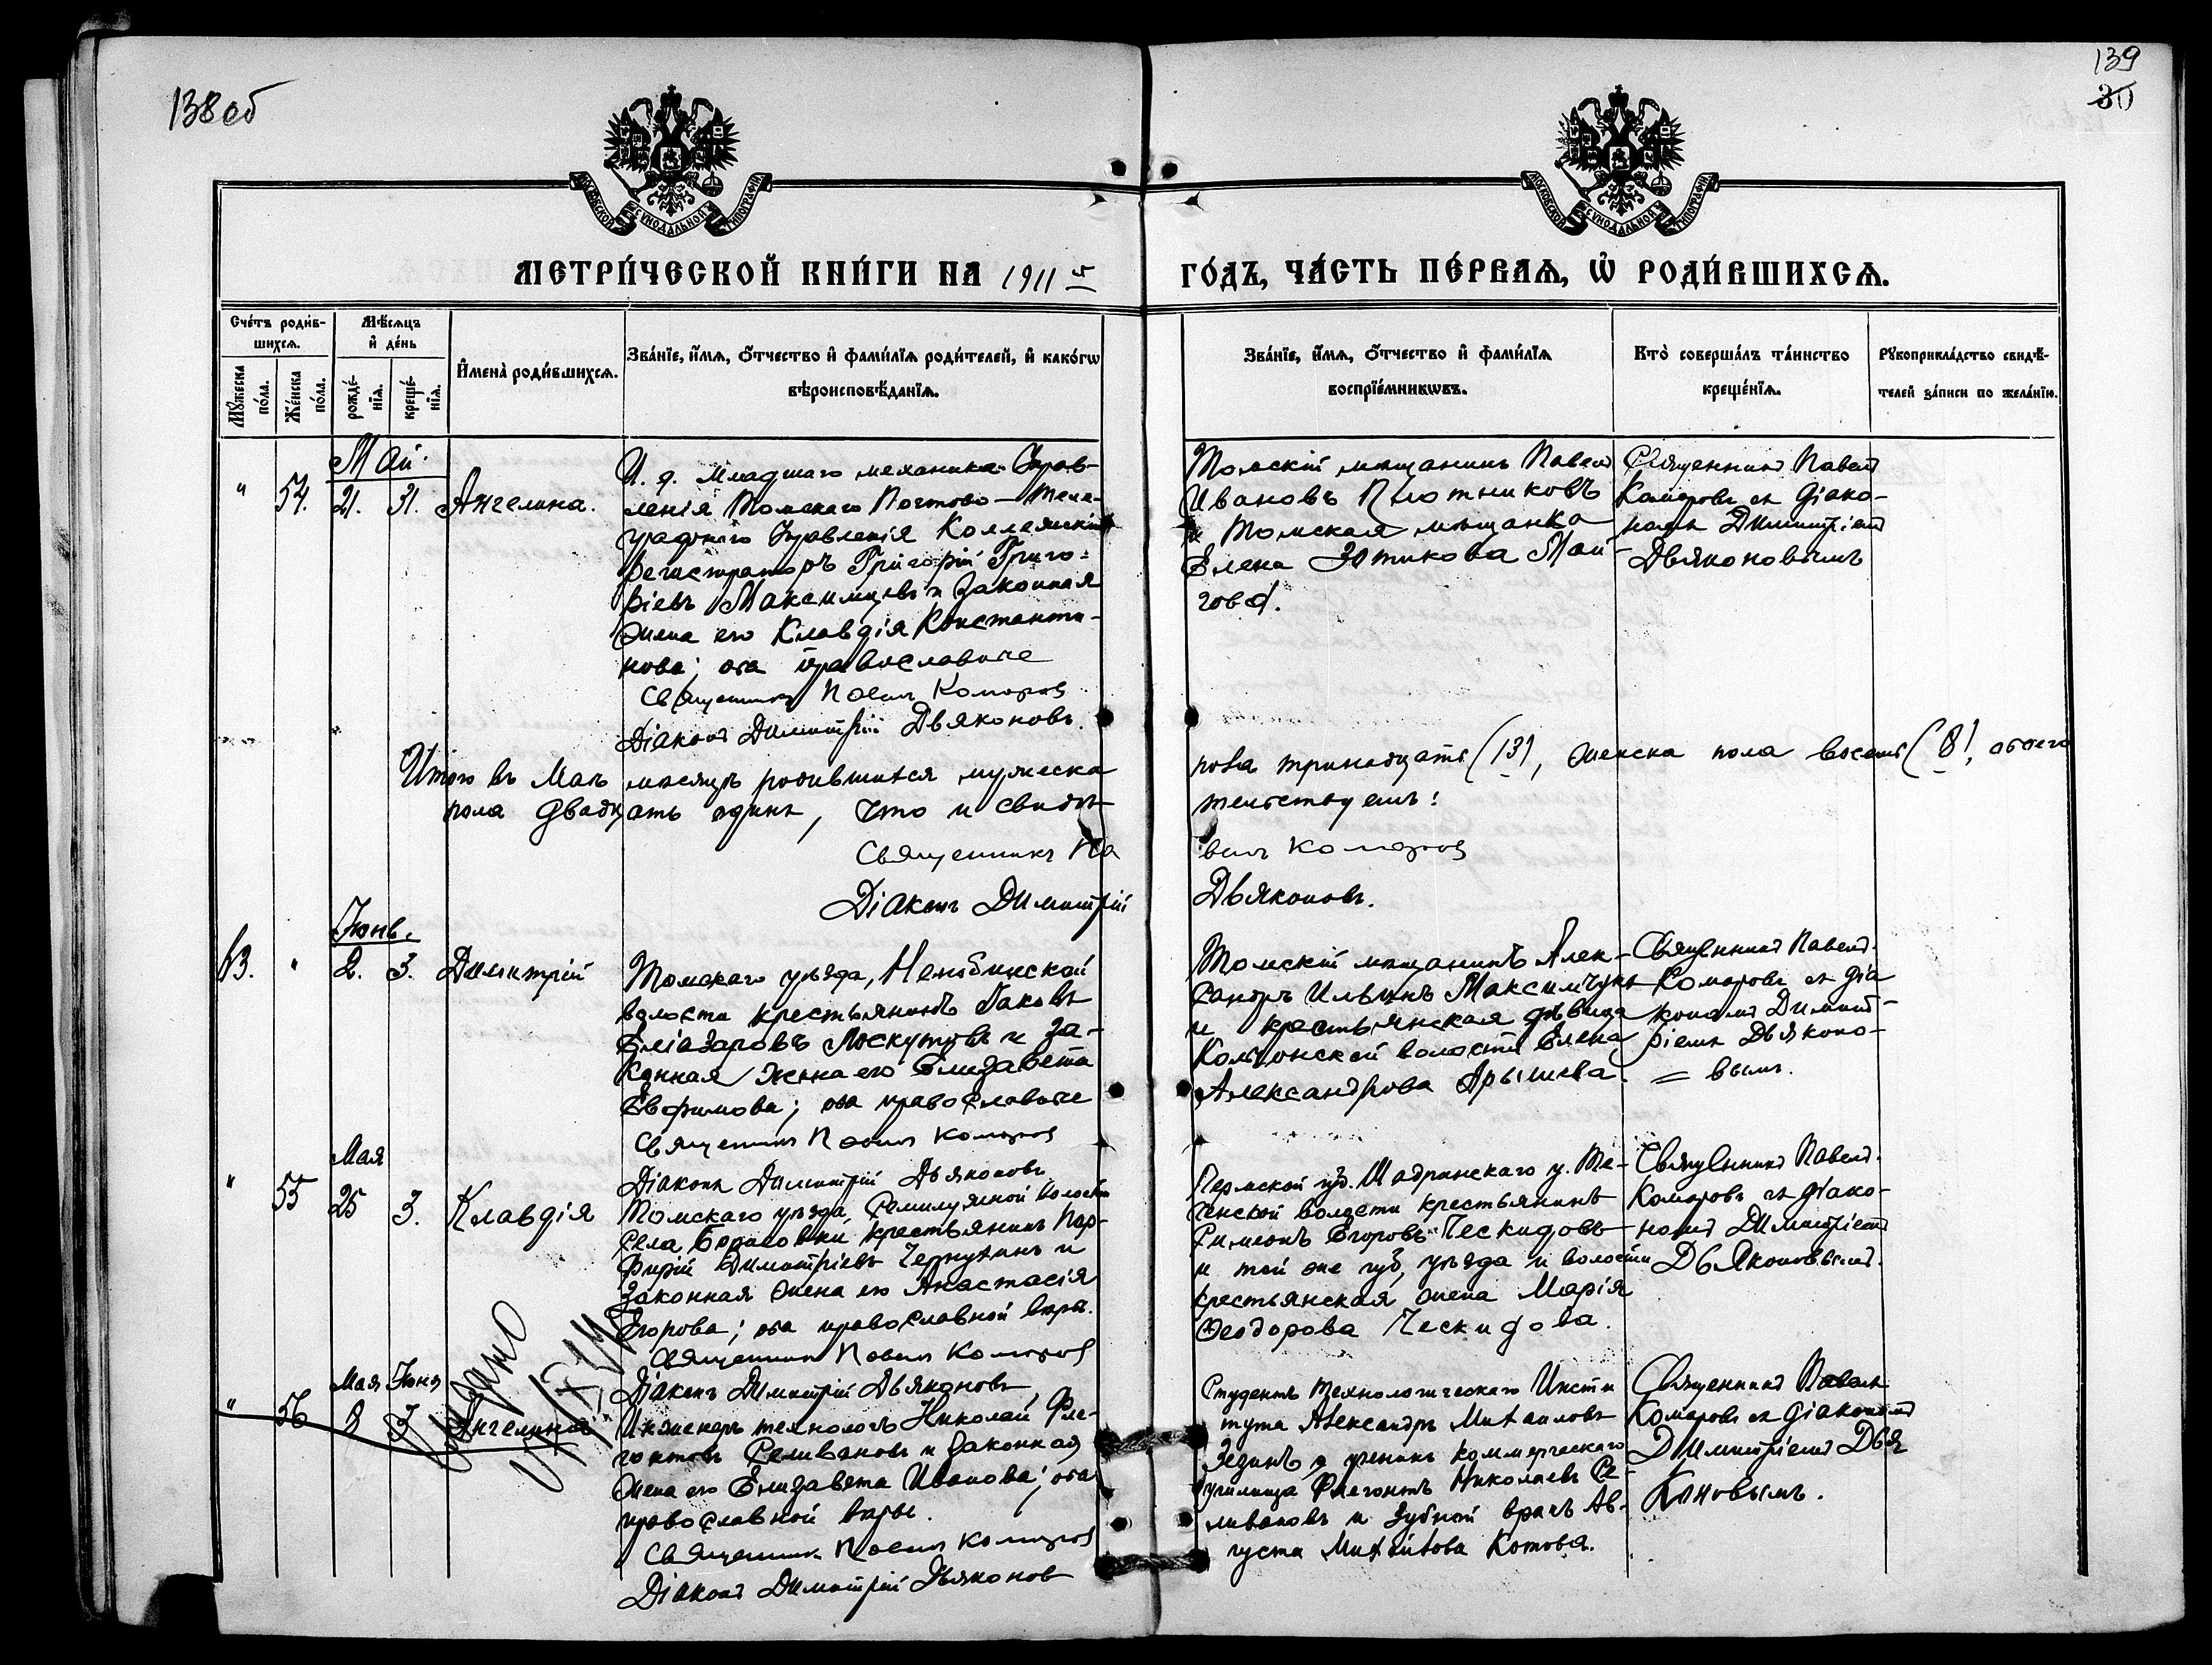 138 об
139
30
МОСКОВСКОЙ СѴНОДАЛЬНОЙ ТИПОГРАФІИ
МОСКОВСКОЙ СѴНОДАЛЬНОЙ ТИПОГРАФІИ
МЕТРИ́ЧЕСКОЙ КНИ́ГИ НА 1911 й
ГО́ДЪ, ЧА́СТЬ ПЕ́РВАѦ, Ѡ҆ РОДИ́ВШИХСѦ.
Счéтъ роди́в-
шихсѧ.
Мꙋ́жеска
по́ла.
Же́нска
по́ла.
Мѣ́сѧцъ
и҆ де́нь
рожде́-
нїѧ.
креще́-
нїѧ.
И҆мена̀ роди́вшихсѧ.
Зва́нїе, и҆́мѧ, ѻ҆́тчество и҆ фами́лїѧ роди́телей, и҆ како́гѡ
вѣроисповѣ́данїѧ.
Зва́нїе, и҆́мѧ, ѻ҆́тчество и҆ фами́лїѧ
воспрїе́мникѡвъ.
Кто̀ соверша́лъ та́инство
креще́нїѧ.
Рꙋкоприкла́дство свидѣ́-
телей за́писи по жела́нїю.
Май.
" 54. 21. 31. Ангелина.
И. д. Младшаго механика Управ-
ленія Томскаго Почтово-Теле-
графнаго Управленія Коллежскій
регистраторъ Григорій Григо-
рьевъ и законная
жена его Клавдія Константи-
нова; оба православные
Священникъ Павелъ Комаровъ
Діаконъ Димитрій Дьяконовъ.
Томскій мѣщанинъ Павелъ
Ивановъ Плотниковъ
и Томская мѣщанка
Елена Зотикова Май-
гова.
Священникъ Павелъ
Комаровъ съ діако-
номъ Димитріемъ
Дьяконовымъ
Итого въ Маѣ мѣсяцѣ родившихся мужеска
пола тринадцать (13), женска пола восемь (8), обоего
пола двадцать одинъ, что и свидѣ-
тельствуемъ:
Священникъ Павелъ Комаровъ
Діаконъ Димитрій Дьяконовъ.
Іюнь.
63. " 2. 3. Димитрій
Томскаго уѣзда, Нелюбинской
волости крестьянинъ Іаковъ
Еліазаровъ Лоскутовъ и за-
конная жена его Елизавета
Евфимова; оба православные
Священникъ Павелъ Комаровъ
Діаконъ Димитрій Дьяконовъ
Томскій мѣщанинъ Алек-
сандръ Ильинъ Максимчукъ
и крестьянская дѣвица
волости Елена
Александрова Арышева.
Священникъ Павелъ
Комаровъ съ діа
кономъ Димит-
ріемъ Дьяконо-
= вымъ.
Мая
" 55 25 3. Клавдія
Томскаго уѣзда, Семилужной волости
села Борисовки крестьянинъ Пор-
фирій Димитріевъ и
законная жена его Анастасія
Егорова; оба православной вѣры.
Священникъ Павелъ Комаровъ
Діаконъ Димитрій Дьяконовъ
Пермской губ. Шадринскаго у. Те-
ченской волости крестьянинъ
Симеонъ Егоровъ Пескидовъ
и той же губ, уѣзда и волости
крестьянская жена Марія
Ѳеодорова Пескидова.
Священникъ Павелъ
Комаровъ съ діако-
номъ Димитріемъ
Дьяконовымъ.
Мая Іюня
" 56 8 3 Ангелина
Выдано
Инженеръ технологъ Николай Фле-
гонтовъ Селивановъ и законная
жена его Елизавета Иванова; оба
православной вѣры.
Священникъ Павелъ Комаровъ
Діаконъ Димитрій Дьяконовъ
Студентъ технологическаго Инсти
тута Александръ Михаиловъ
ученикъ коммерческаго
училища Флегонтъ Николаевъ Се-
ливановъ и зубной врачъ Ав-
густа Котова.
Священникъ Павелъ
Комаровъ съ діакономъ
Димитріемъ Дья
коновымъ.